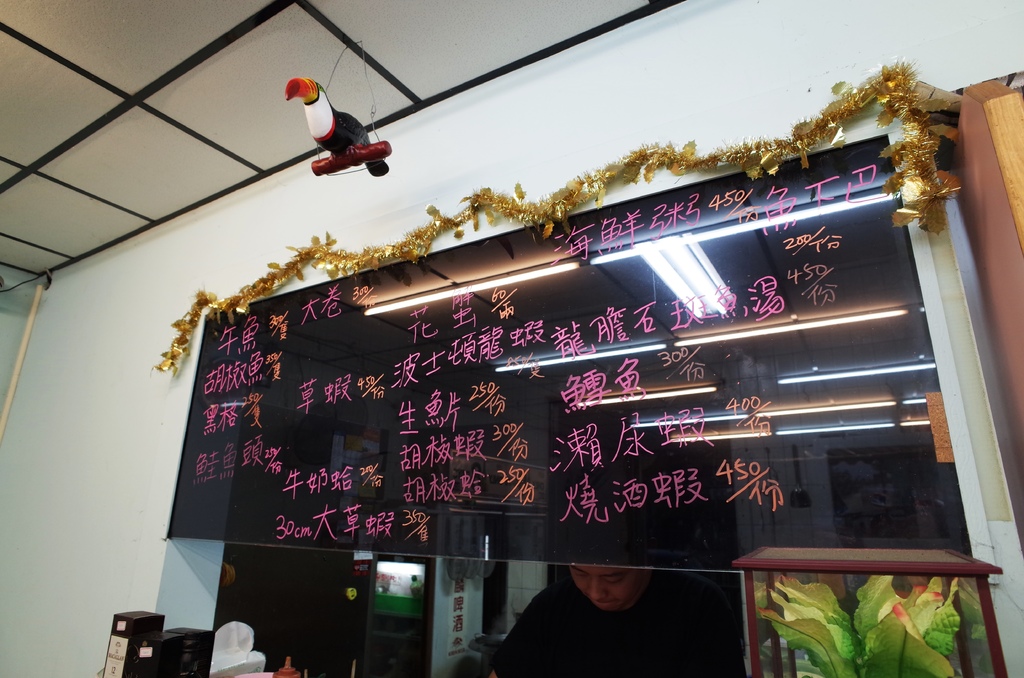 午魚 300/隻
胡椒魚 350/隻
黑格 250/隻
鮭魚頭 250/份
大卷 300/份
草蝦 450/份
牛奶蛤 250/份
30cm大草蝦 350/隻
花蟹 60/兩
波士頓龍蝦
生魚片 250/份
胡椒蝦 300/份
胡椒蛤 250/份
海鮮粥 450/份
龍膽石斑魚湯 450/份
鱈魚 300/份
瀨尿蝦 400/份
燒酒蝦 450/份
魚下巴 200/份
啤酒